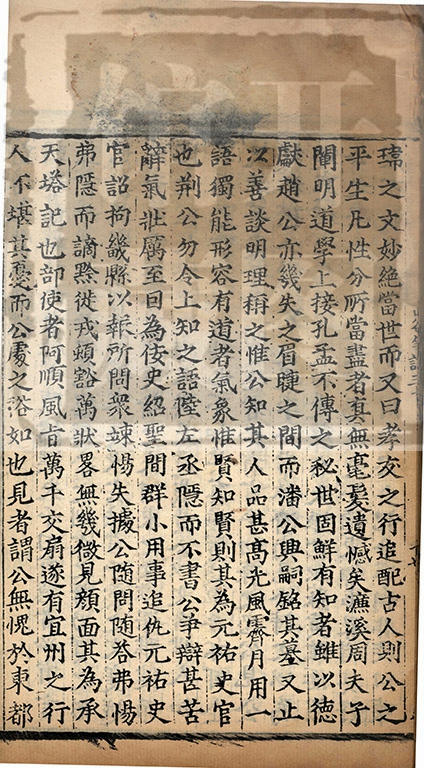 瑋之文妙絶當世而又曰孝友之行追配古人則公之
平生凡性分所當盡者真無毫髮遺憾矣濂溪周夫子
闡明道學上接孔孟不傳之秘世固鮮有知者雖以德
獻趙公亦幾失之眉睫之間而潘公興嗣銘其墓又止
以善談明理稱之惟公知其人品甚髙光風霽月用一
語獨能形容有道者氣象惟賢知賢則其為元祐史官
也荆公勿令上知之語陸左丞隱而不書公爭辯甚苦
辭氣壯厲至曰為佞史紹聖間群小用事追仇元祐史
官詔拘畿縣以報所問衆竦惕失據公隨問隨荅弗惕
弗隱而謫黔徙戎頻豁萬狀畧無幾微見顔面其為承
天塔記也部使者阿順風旨萬千交扇遂有宜州之行
人不堪其憂而公處之浴如也見者謂公無愧於東都